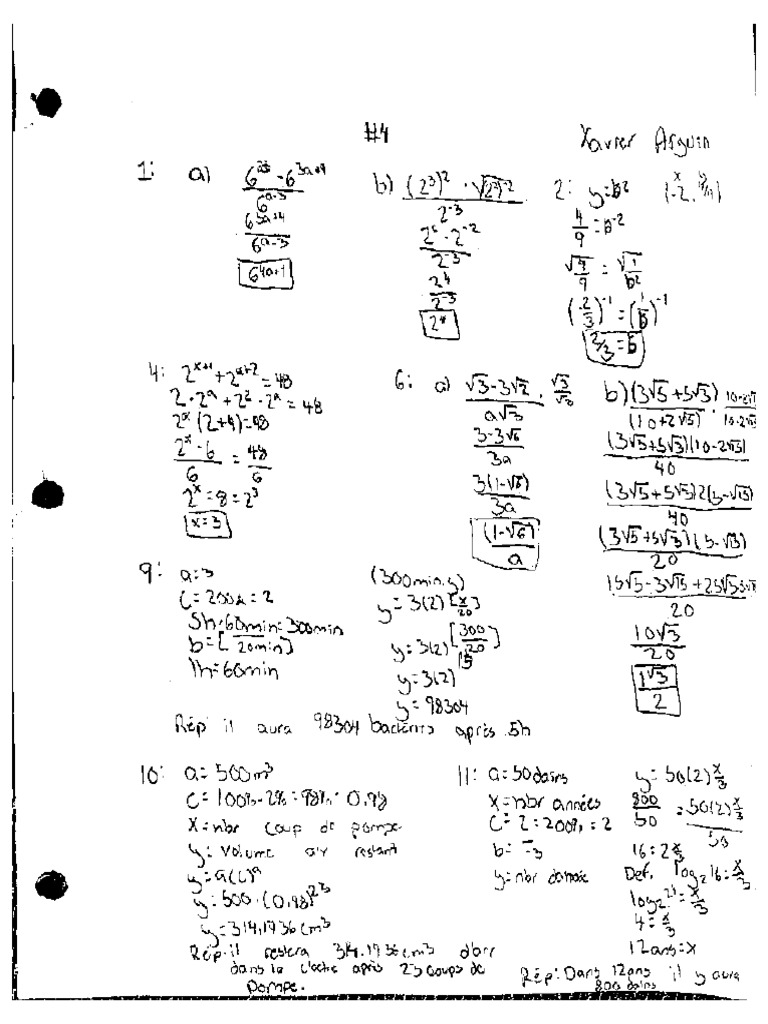 #4 Xavier Arguin
1: a) 6^(2a) · 6^(3a+4) / 6^(a-3)
6^(5a+4) / 6^(a-3)
6^(4a+7)
b) (2³)² · √(2²)^-2 / 2^-3
2⁶ · 2^-2 / 2^-3
2⁴ / 2^-3
2⁷
2: y=b² (-2, 4/9)
x y
4/9 = b^-2
√4/9 = √1/b²
(2/3)^-1 = (1/b)^-1
2/3 = b
4: 2^(x+1) + 2^(x+2) = 48
2 · 2^x + 2² · 2^x = 48
2^x (2+4) = 48
2^x · 6 / 6 = 48 / 6
2^x = 8 = 2³
x=3
6: a) √3-3√2 / a√3 · √3/√3
3-3√6 / 3a
3(1-√6) / 3a
(1-√6) / a
b) (3√5+5√3) / (10+2√5) · 10-2√5 / 10-2√5
(3√5+5√3)(10-2√15) / 40
(3√5+5√3)2(5-√15) / 40
(3√5+5√3)(5-√15) / 20
15√5-3√75+25√3 / 20
10√3 / 20
1√3 / 2
9: a=3
C=200% = 2
5h·60min=300min
b=[ /20min]
1h=60min
(300min,y)
y=3(2)^[x/20]
y=3(2)^[300/20]
y=3(2)^15
y=98304
Rép: il aura 98304 bactéries après 5h
10: a=500m³
C=100%-2%=98%= 0,98
x=nbr coup de pompe
y= volume air restant
y=a(c)^x
y=500·(0,98)^23
y=314,1936cm³
Rép: il restera 314,1936cm³ d'air
dans la cloche après 23 coups de
pompe.
11: a=50dains
x=nbr années
C=2=200%=2
b= -3
y=nbr dains
y=50(2)^(x/3)
800/50 = 50(2)^(x/3) / 50
16=2^(x/3)
Def. log₂16=x/3
log₂2⁴=x/3
4=x/3
12ans=x
Rép: Dans 12ans il y aura
800 dains